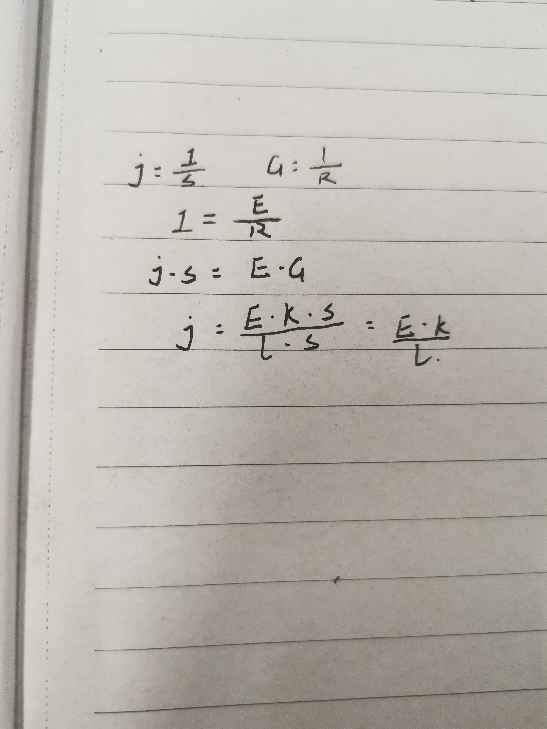 j = 1/s G = 1/R
1 = E/R
j·s = E·G
j = E·K·s/L·s = E·K/L.